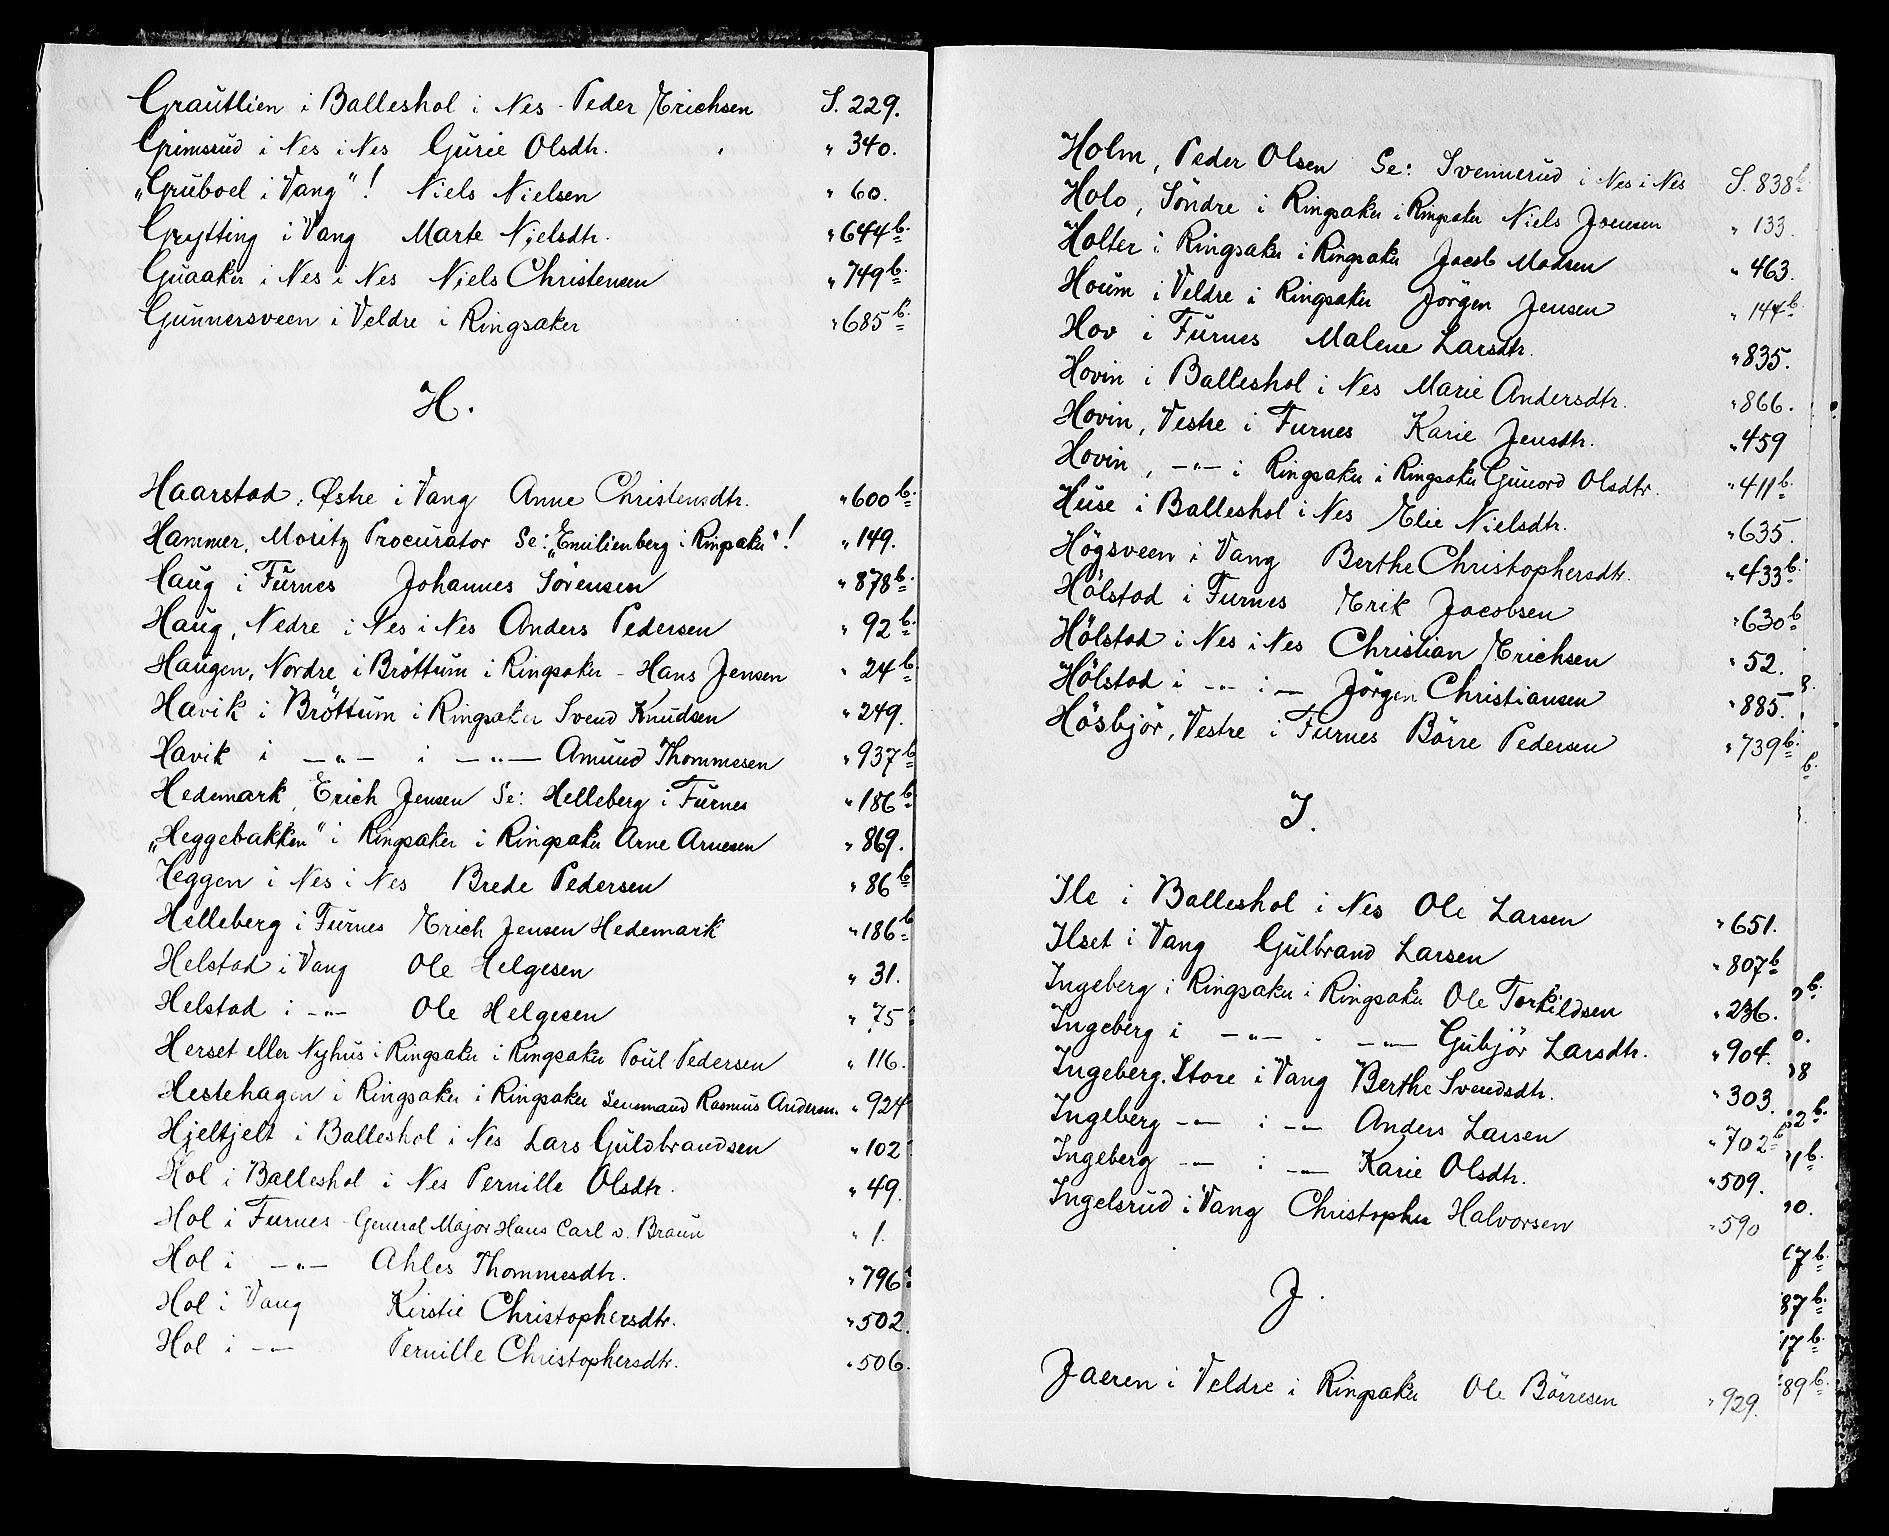 Grautlien i Balleshol i Nes - Peder Erichsen S. 229.
Grimsrud i Nes i Nes Gurie Olsdtr. " 340.
"Gruboel i Vang"! Niels Nielsen " 60.
Grytting i Vang Marte Nielsdtr. " 644 b.
Guaaker i Nes i Nes Niels Christensen " 749 b.
Gunnersveen i Veldre i Ringsaker " 685 b.
H.
Haarstad, Østre i Vang Anne Christensdtr. " 600 b.
Hammer, Moritz Procurator Se: "Emilienberg i Ringsaker"! " 149.
Haug i Furnes Johannes Sörensen " 878 b.
Haug, Nedre i Nes i Nes Anders Pedersen " 92 b.
Haugen, Nordre i Bröttum i Ringsaker - Hans Jensen " 24 b
Havik i Bröttum i Ringsaker Svend Knudsen " 249.
Havik i - " - i - " - Amund Thommesen " 937 b
Hedemark, Erich Jensen Se: Helleberg i Furnes " 186 b.
"Heggebakken" i Ringsaker i Ringsaker Arne Arnesen " 869.
Heggen i Nes i Nes Brede Pedersen " 86 b
Helleberg i Furnes Erich Jensen Hedemark " 186 b
Helstad i Vang Ole Helgesen " 31.
Helstad i - " - Ole Helgesen " 75
Herset eller Nyhus i Ringsaker i Ringsaker Poul Pedersen " 116.
Hestehagen i Ringsaker i Ringsaker Leusmand Rasmus Andersen. " 924
Hjeltjelt i Balleshol i Nes Lars Guldbrandsen " 102
Hol i Balleshol i Nes Pernille Olsdtr. " 49.
Hol i Furnes - General Major Hans Carl v. Braun " 1.
Hol i - " - Ahles Thommesdtr. " 796
Hol i Vang Kirstie Christophersdtr. " 502.
Hol i - " - Pernille Christophersdtr. " 506.
Holm, Peder Olsen Se: Svennerud i Nes i Nes S. 838 b.
Holo, Söndre i Ringsaker i Ringsaker Niels Joensen " 133.
Holter i Ringsaker i Ringsaker Jacob Madsen " 463.
Houm i Veldre i Ringsaker Jörgen Jensen " 144 b.
Hov i Furnes Malene Larsdtr. " 835.
Hovin i Balleshol i Nes Marie Andersdtr. " 866.
Hovin, Vestre i Furnes Karie Jensdtr. " 459
Hovin, - " - i Ringsaker i Ringsaker Gunord Olsdtr. " 411 b.
Huse i Balleshol i Nes Elie Nielsdtr. " 635.
Högsveen i Vang Berthe Christophersdtr. " 433 b.
Hölstad i Furnes Erik Jacobsen " 630 b
Hölstad i Nes i Nes Christian Erichsen " 52.
Hölstad i - " - i - Jörgen Christiansen " 885.
Hösbjör, Vestre i Furnes Börre Pedersen " 739 b.
I.
Ile i Balleshol i Nes Ole Larsen " 651.
Ilset i Vang Gulbrand Larsen " 807 b
Ingeberg i Ringsaker i Ringsaker Ole Torkildsen " 236.
Ingeberg i - " - - " - Gubjör Larsdtr. " 904.
Ingeberg. Store i Vang Berthe Svendsdtr. " 303.
Ingeberg - " - i - " - Anders Larsen " 702 b
Ingeberg - " - i - " - Karie Olsdtr. " 509.
Ingelsrud i Vang Christopher Halvorsen " 590
J.
Jaeren i Veldre i Ringsaker Ole Börresen " 929.